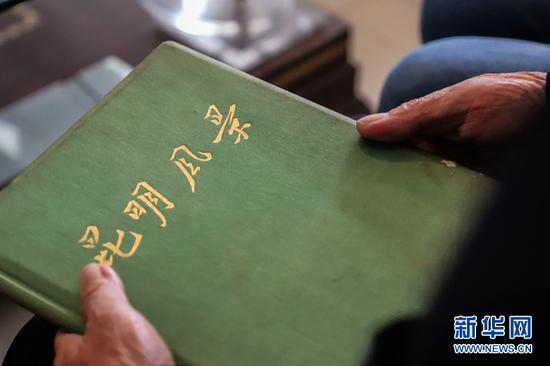 昆明风景
新华网
WWW.NEWS.CN